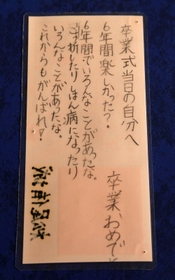 卒業式当日の自分へ
卒業、おめでとう
6年間楽しかった？
6年間でいろんなことがあったな。
こっ折したりしはん病になったり
いろんなことがあったな。
これからもがんばれ！